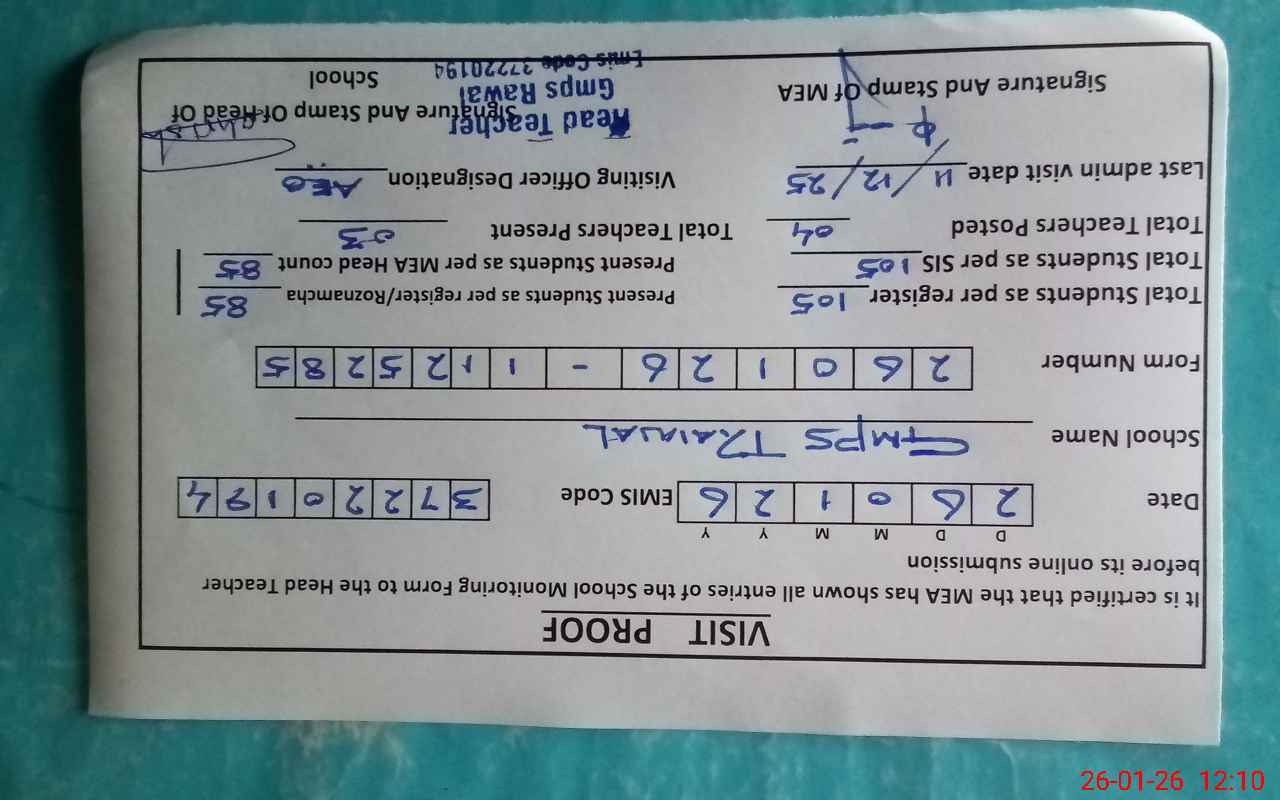 VISIT PROOF
It is certified that the MEA has shown all entries of the School Monitoring Form to the Head Teacher
before its online submission
D D M M Y Y
Date 2 6 0 1 2 6 EMIS Code 3 7 2 2 0 1 9 4
School Name GMPS
Form Number 2 6 0 1 2 6 - 1 1 2 5 2 8 5
Total Students as per register 105 Present Students as per register/Roznamcha 85
Total Students as per SIS 105 Present Students as per MEA Head count 85
Total Teachers Posted 04 Total Teachers Present 03
Last admin visit date 11/12/25 Visiting Officer Designation AEO
Signature And Stamp Of MEA Signature And Stamp Of Head Of
School
Head Teacher
Gmps Rawal
Emis Code 37220194
26-01-26 12:10